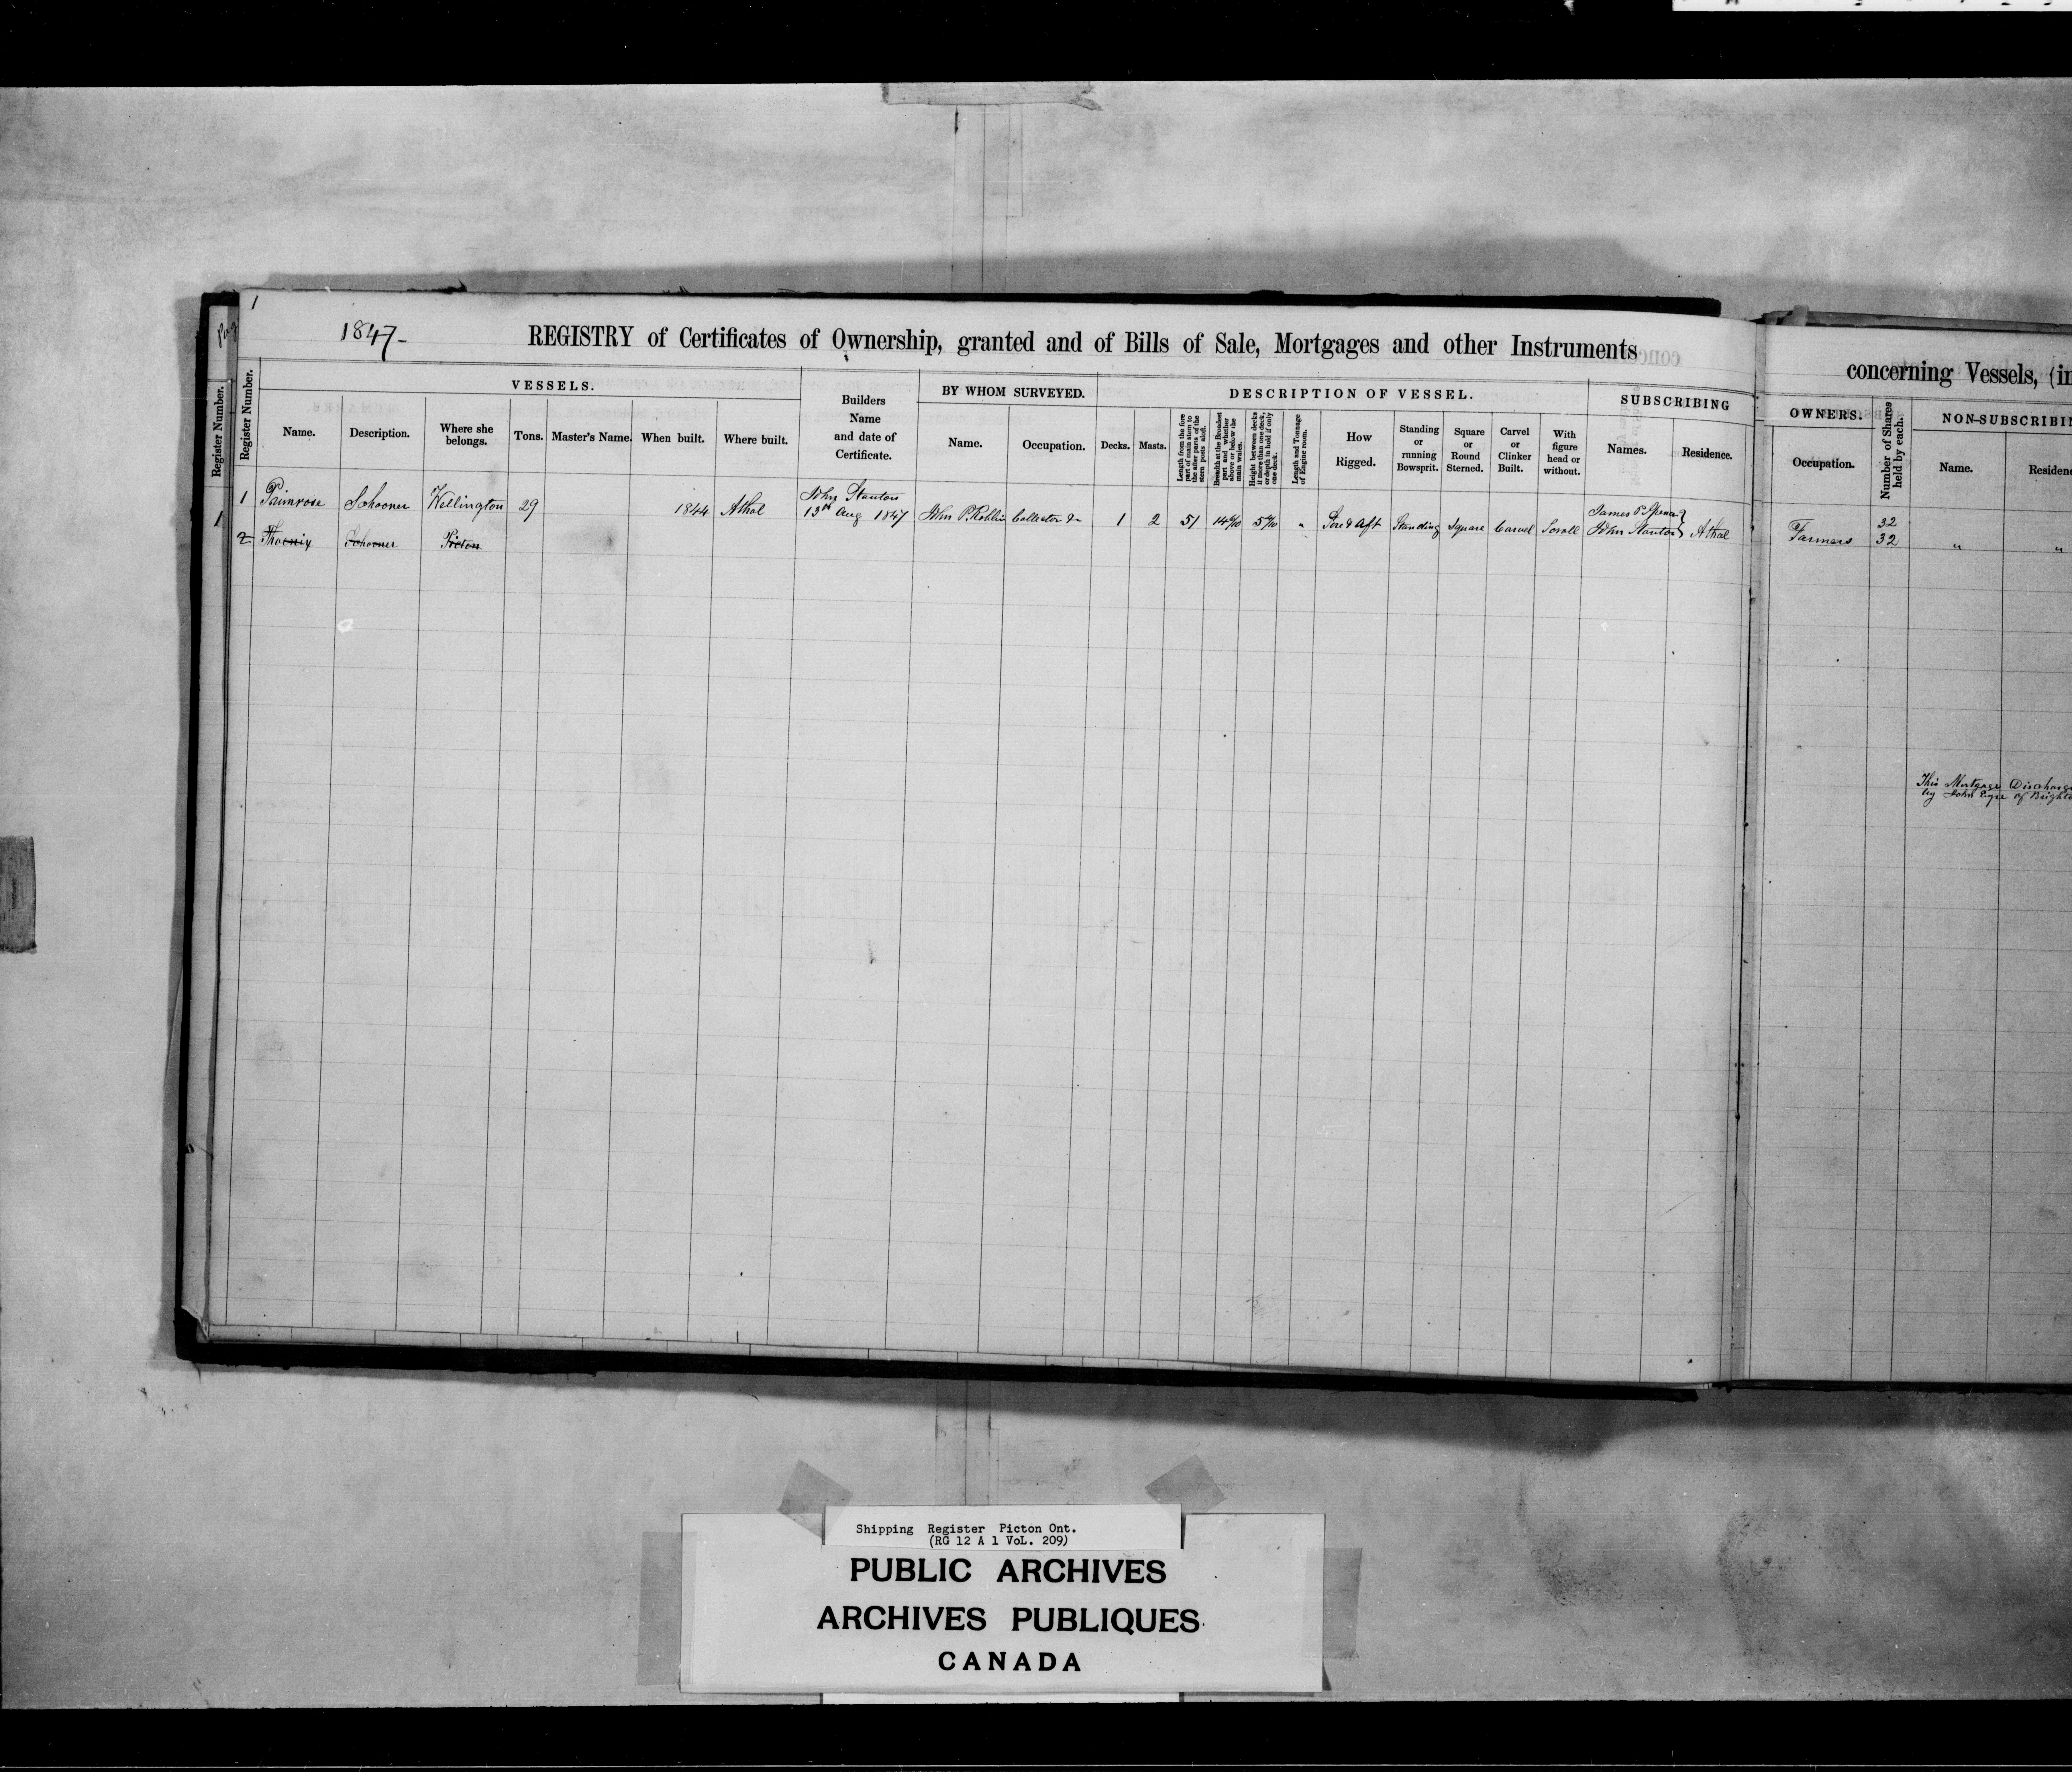 1
1847-
REGISTRY of Certificates of Ownership, granted and of Bills of Sale, Mortgages and other Instruments
concerning Vessels, (in
Register Number.
Register Number.
VESSELS.
Name.
Description.
Where she belongs.
Tons.
Master's Name.
When built.
Where built.
Builders Name and date of Certificate.
BY WHOM SURVEYED.
Name.
Occupation.
DESCRIPTION OF VESSEL.
Decks.
Masts.
Length from the fore part of main stem to the after parts of the stern posts aloft.
Breadth at the Broadest part and whether above or below the main wales.
Height between decks if more than one deck, or depth in hold if only one deck.
Length and Tonnage of Engine room.
How Rigged.
Standing or running Bowsprit.
Square or Round Sterned.
Carvel or Clinker Built.
With figure head or without.
SUBSCRIBING
Names.
Residence.
OWNERS.
Occupation.
Number of Shares held by each.
NON-SUBSCRIBIN
Name.
Residenc
1 Primrose Schooner Wellington 29 1844 Athol John Stanton 13th Aug 1847 John P. Roblin Collector &c 1 2 51 " Fore & Aft Standing Square Carvel Scroll James P. John Stanton } Athol Farmers 32 32 " "
1
2 Phoenix Schooner Picton
This Mortgage Discharge
by John of Bright
Shipping Register Picton Ont.
(RG 12 A 1 VoL. 209)
PUBLIC ARCHIVES
ARCHIVES PUBLIQUES
CANADA